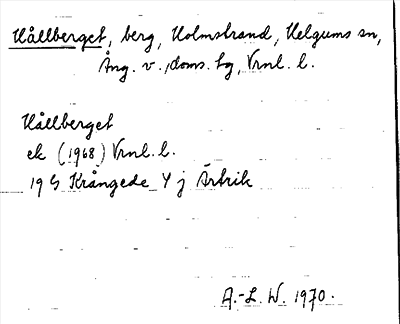 Hållberget, berg, Holmstrand, Helgums sn,
Ång. v. doms. tg, Vrnl. l.
Hållberget
ek (1968) Vrnl. l.
19 G Krångede 4 j Ärtrik
A.-L. W. 1970.